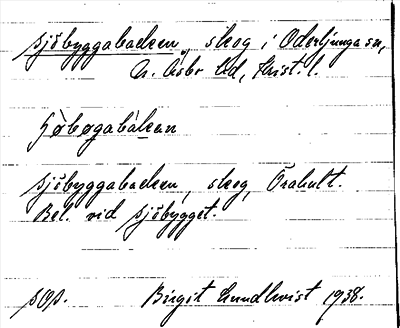 Sjöbyggabacken, skog i Oderljunga sn,
N. Åsbo hd, Krist. l.
sjöbyggabacken, skog, Örahult.
Bel. vid sjöbygget.
SOP. Birgit Lundkvist 1938.